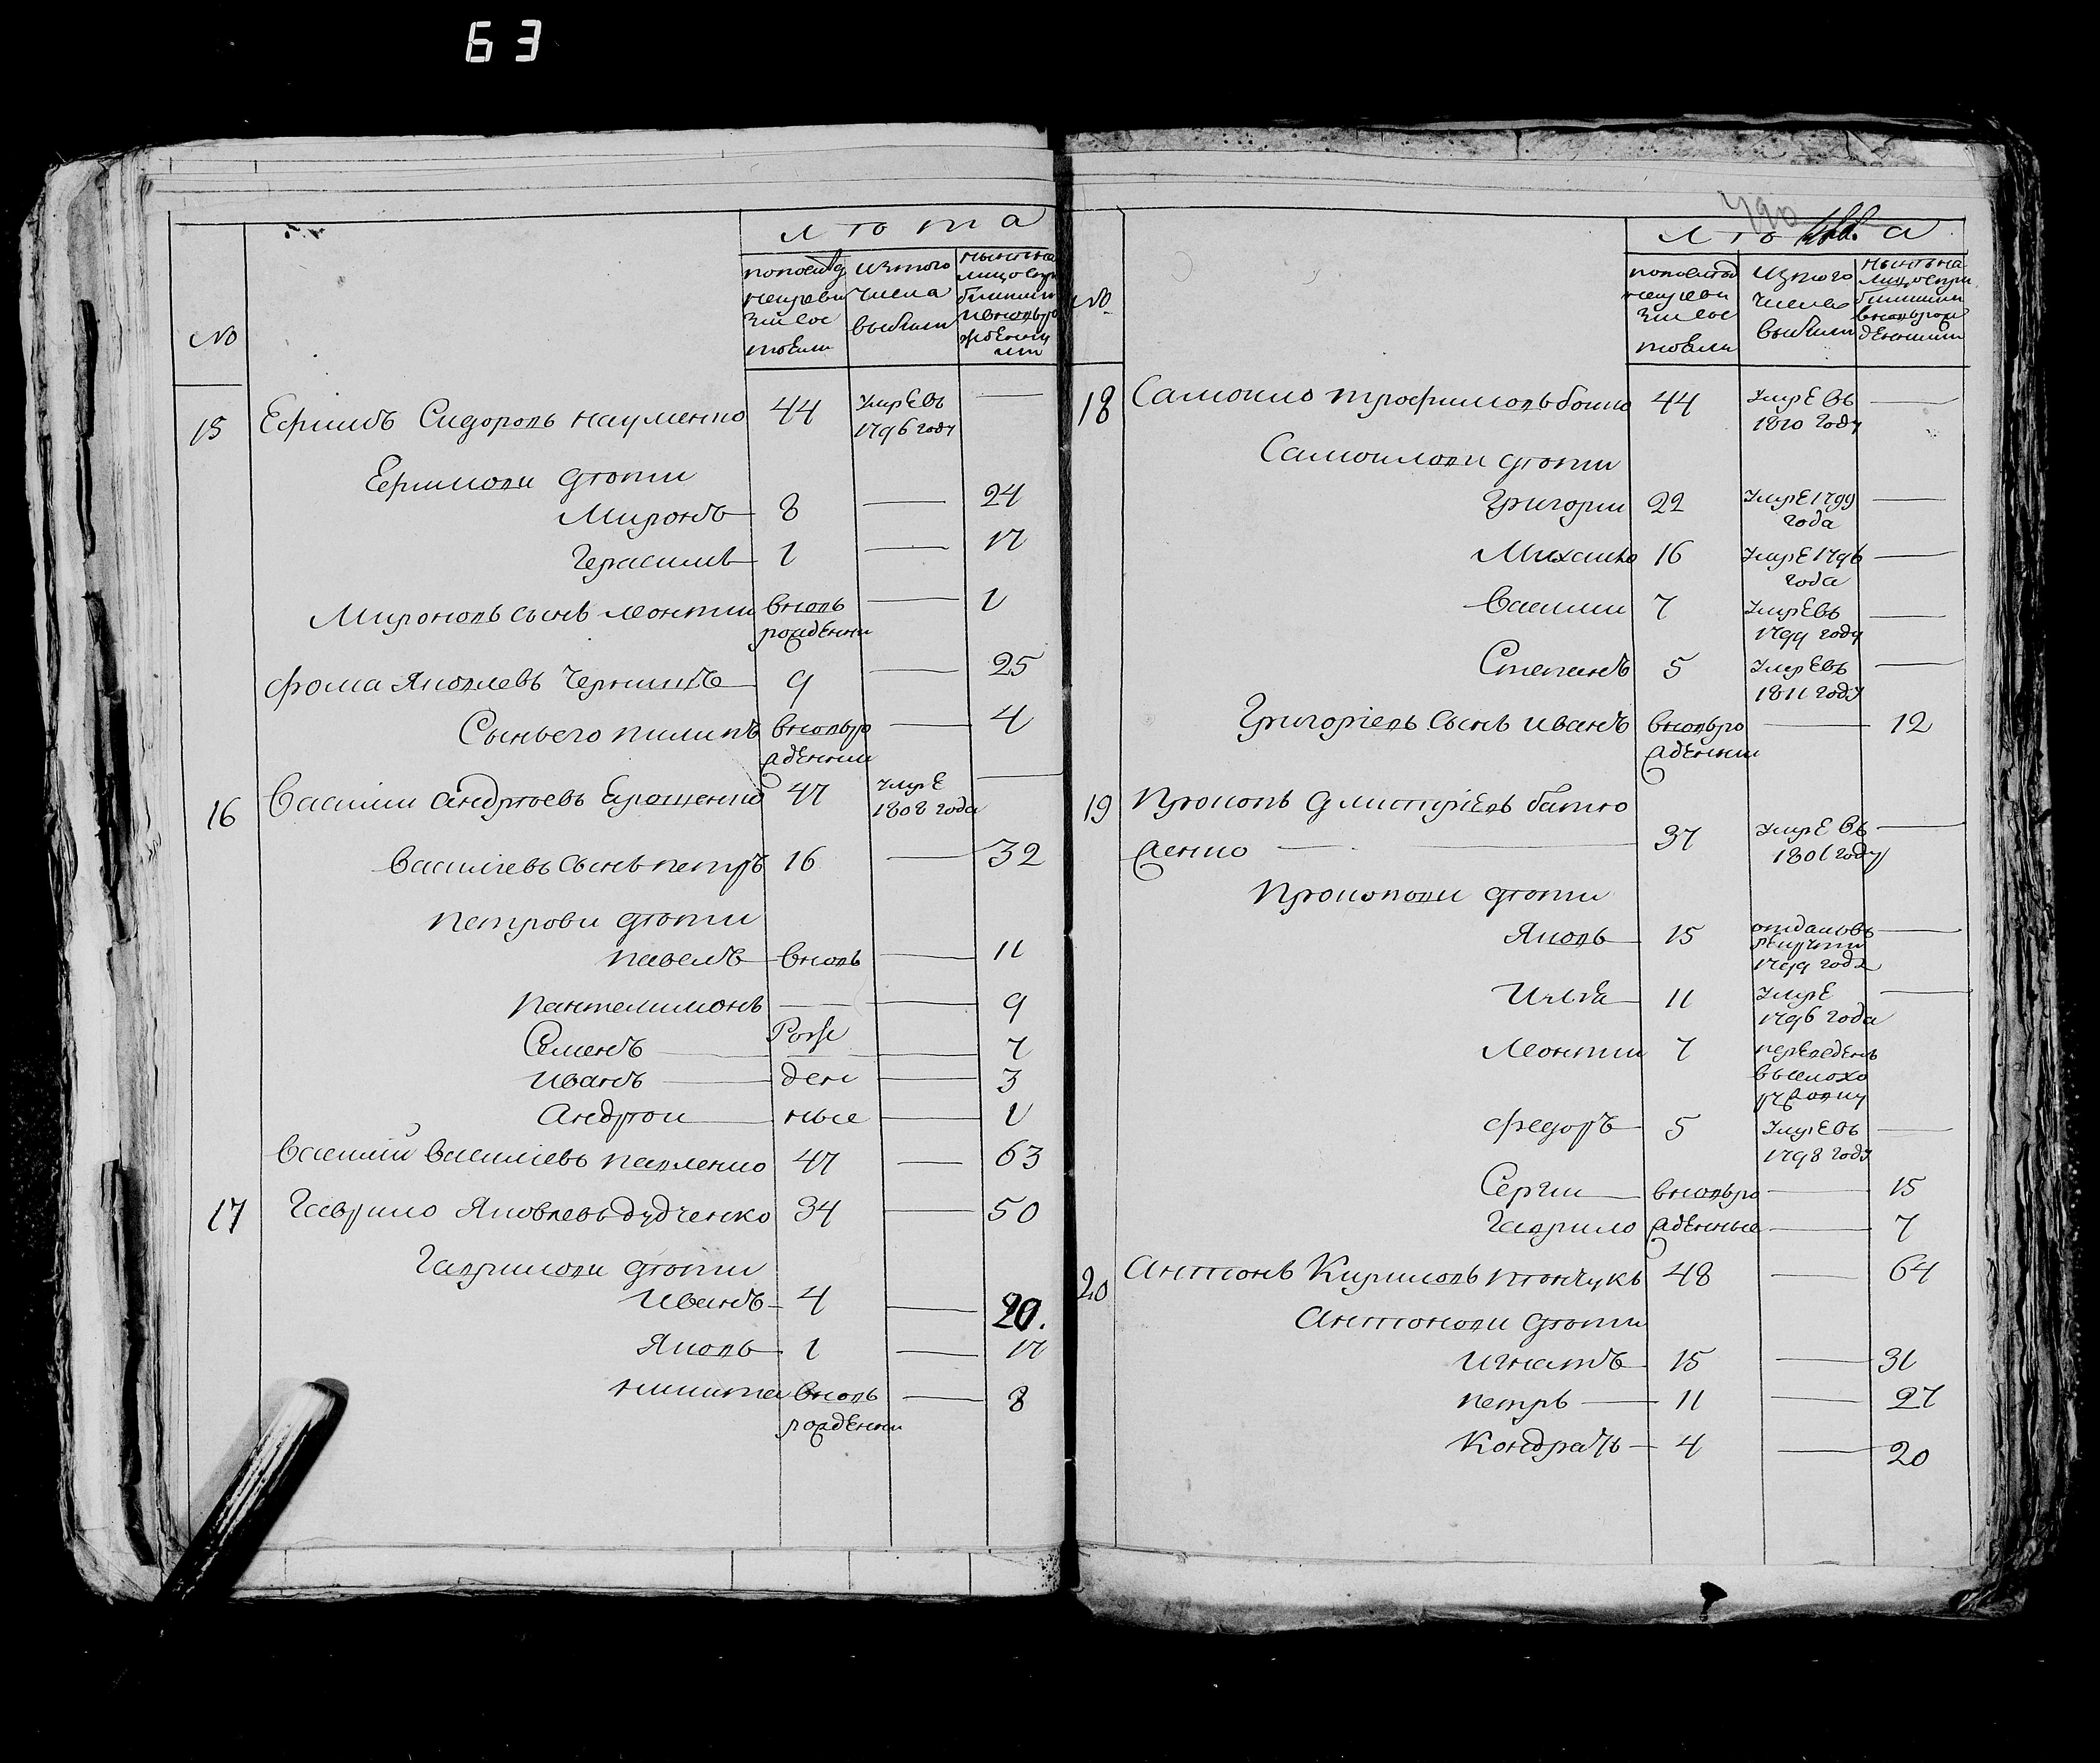 63
Лѣта
№
по послѣд
ней реви
зии сос
тояли
из того
числа
выбыли
ныне на
лицо съ при
былыми
и вновь ро
жденны
ми
15 Ефимъ Сидоровъ Науменко 44 умре въ —
1796 году
Ефимови дѣти
Миронъ 8 — 24
Герасимъ 1 — 17
Мироновъ сынъ Леонтии вновь — 1
рожденни
Фома Яковлевъ 9 — 25
Сынъ его Пилипъ вновь ро — 4
жденнии
16 Василии Андрѣевъ Ерошенко 47 умре —
1808 года
Василіевъ сынъ Петръ 16 — 32
Петрови дѣти
Павелъ вновь — 11
Пантелимонъ — — 9
Семенъ рож — 7
Иванъ ден — 3
Андрѣи ные — 1
Василий Василіевъ Павленко 47 — 63
17 Гаврило Яковлевъ Дудченко 34 — 50
Гаврилови дѣти
Иванъ 4 — 20.
Яковъ 1 — 17
Никита вновь — 8
рожденни
Лѣта
№
по послѣд
ней реви
зии сос
тояли
из того
числа
выбыли
ныне на
лицо съ при
былыми
вновь рож
денними
18 Самоило Трофимовъ Бойко 44 умре въ —
1810 году
Самоилови дѣти
Григории 22 умре 1799 —
года
Михаило 16 умре 1796 —
года
Василии 7 умре въ —
1799 году
Степанъ 5 умре въ —
1811 году
Григоріевъ сынъ Иванъ вновь ро — 12
жденнии
19 Прокопъ Дмитріевъ Батю
женко — 37 умре въ —
1801 году
Прокопови дѣти
Яковъ 15 отдан въ —
рекруты
1799 года
Илья 11 умре —
1796 года
Леонтии 7 переведенъ
в село
Федоръ 5 умре въ —
1798 году
Сергии вновь ро — 15
Гаврило жденные — 7
20 Антонъ Кириловъ 48 — 64
Антонови дѣти
Игнатъ 15 — 31
Петръ 11 — 27
Кондратъ 4 — 20